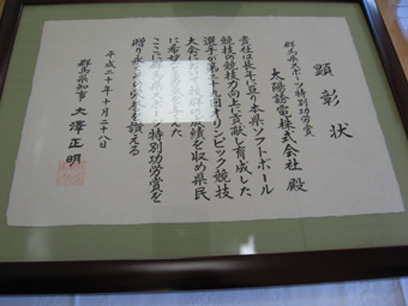 顕彰状
群馬県スポーツ特別功労賞
太陽誘電株式会社 殿
貴社は長年に亘り本県ソフトボール
競技の競技力向上に貢献し育成した
選手が第二十九回オリンピック競技
大会において抜群の成績を収め県民
に希望と勇気を与えた
ここに群馬県スポーツ特別功労賞を
贈り永くその栄誉を讃える
平成二十年十月二十八日
群馬県知事 大澤正明